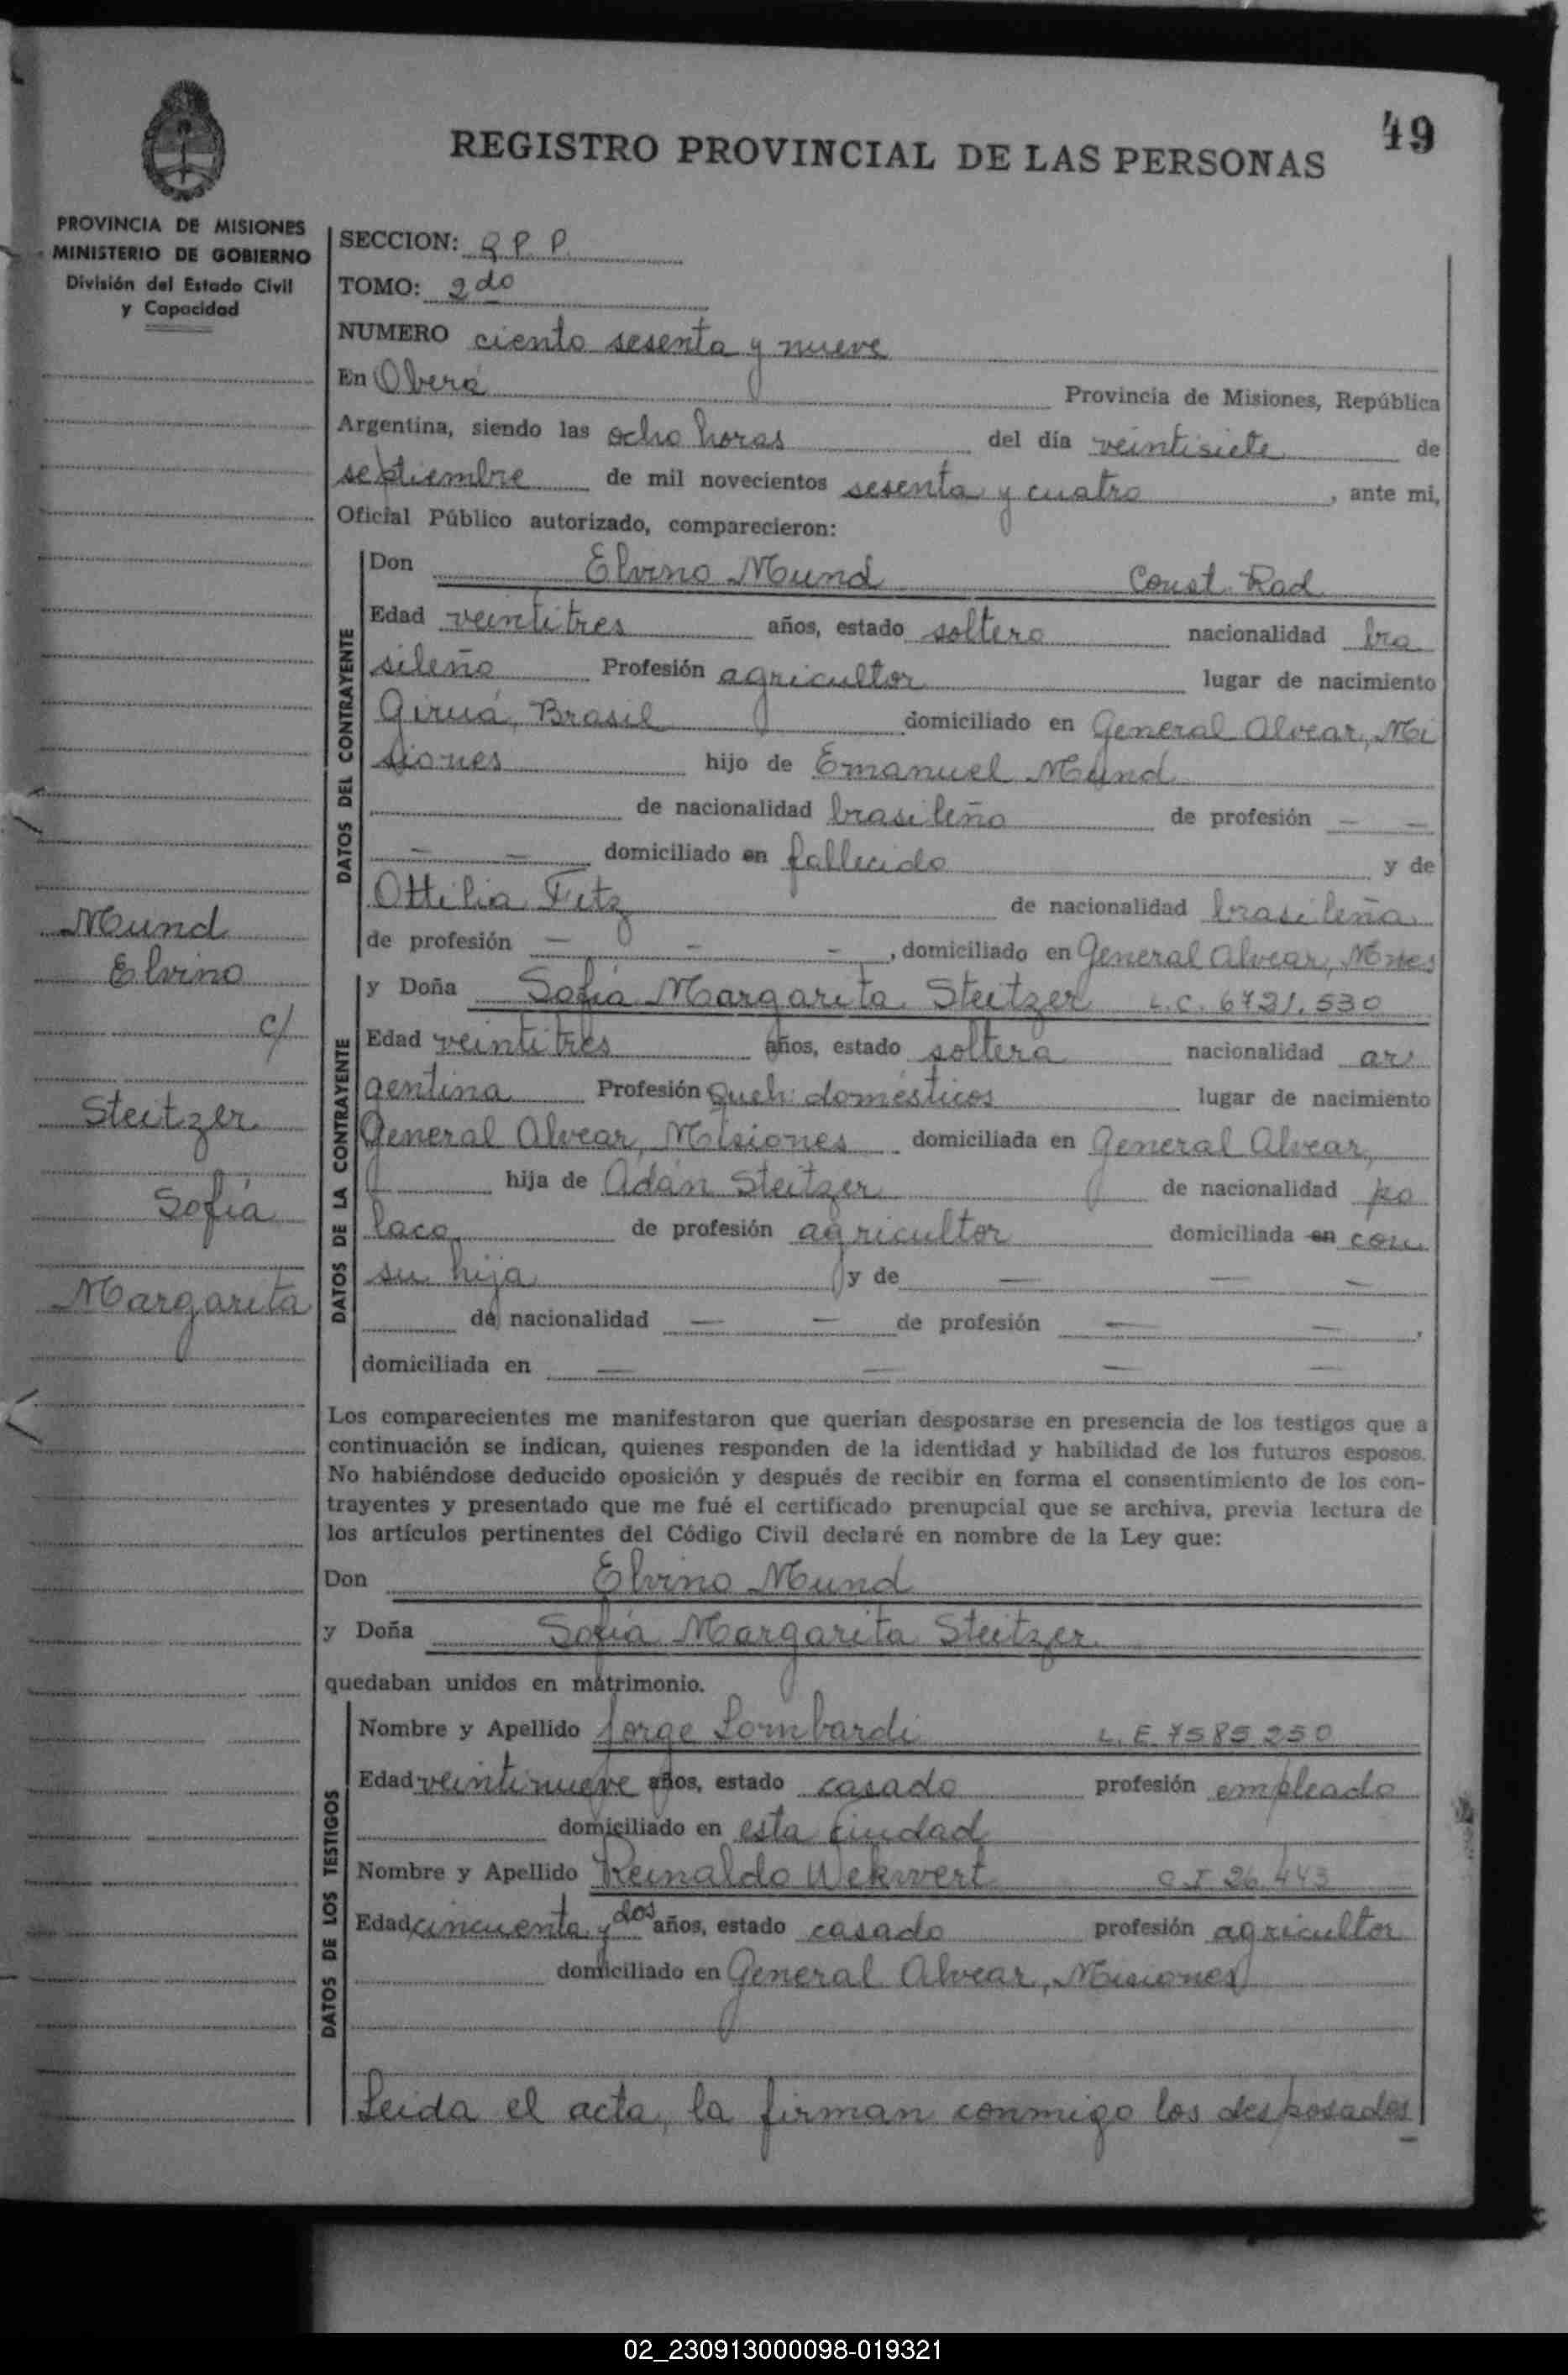 49
REGISTRO PROVINCIAL DE LAS PERSONAS
PROVINCIA DE MISIONES
MINISTERIO DE GOBIERNO
División del Estado Civil
y Capacidad
SECCION: R.P.P.
TOMO: 2do
NUMERO ciento sesenta y nueve
En Oberá Provincia de Misiones, República
Argentina, siendo las ocho horas del día veintisiete de
septiembre de mil novecientos sesenta y cuatro, ante mi,
Oficial Público autorizado, comparecieron:
DATOS DEL CONTRAYENTE
Don Elvino Mund Const. Rad
Edad veintitres años, estado soltero nacionalidad bra
sileño Profesión agricultor lugar de nacimiento
Giruá, Brasil domiciliado en General Alvear, Mi
siones hijo de Emanuel Mund
de nacionalidad brasileño de profesión — —
— — domiciliado en fallecido y de
Ottilia Fetz de nacionalidad brasileña
de profesión — — —, domiciliado en General Alvear, Mnes
Mund
Elvino
c/
Steitzer
Sofía
Margarita
DATOS DE LA CONTRAYENTE
y Doña Sofía Margarita Steitzer L.C. 6721.530
Edad veintitres años, estado soltera nacionalidad ar
gentina Profesión Queh. domésticos lugar de nacimiento
General Alvear, Misiones domiciliada en General Alvear,
hija de Adán Steitzer de nacionalidad po
laco de profesión agricultor domiciliada en con
su hija y de — — —
de nacionalidad — — de profesión — —,
domiciliada en — — — —
Los comparecientes me manifestaron que querían desposarse en presencia de los testigos que a
continuación se indican, quienes responden de la identidad y habilidad de los futuros esposos.
No habiéndose deducido oposición y después de recibir en forma el consentimiento de los con-
trayentes y presentado que me fué el certificado prenupcial que se archiva, previa lectura de
los artículos pertinentes del Código Civil declaré en nombre de la Ley que:
Don Elvino Mund
y Doña Sofía Margarita Steitzer
quedaban unidos en matrimonio.
DATOS DE LOS TESTIGOS
Nombre y Apellido Jorge Lombardi L.E. 7585250
Edad veintinueve años, estado casado profesión empleado
domiciliado en esta ciudad
Nombre y Apellido Reinaldo Wekwert C.I. 26.443
Edad cincuenta y dos años, estado casado profesión agricultor
domiciliado en General Alvear, Misiones
Leida el acta, la firman conmigo los desposados
02_230913000098-019321